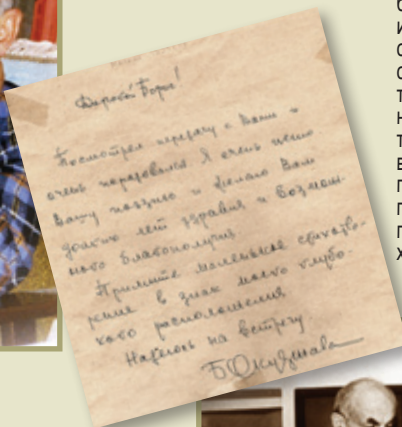 Дорогой Борис!
Посмотрел передачу с Вами и
очень порадовался. Я очень ценю
Вашу поэзию и желаю Вам
долгих лет здравия и возмож-
ного благополучия.
Примите маленькое стихотво-
рение в знак моего глубо-
кого расположения.
Надеюсь на встречу
Б Окуджава